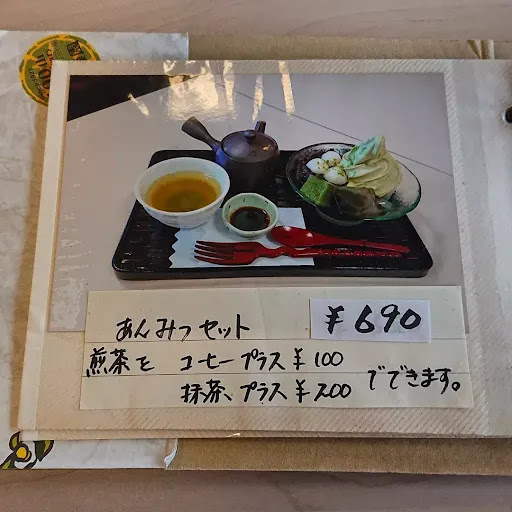 あんみつセット ¥690
煎茶を コーヒープラス¥100
抹茶、プラス¥200 でできます。